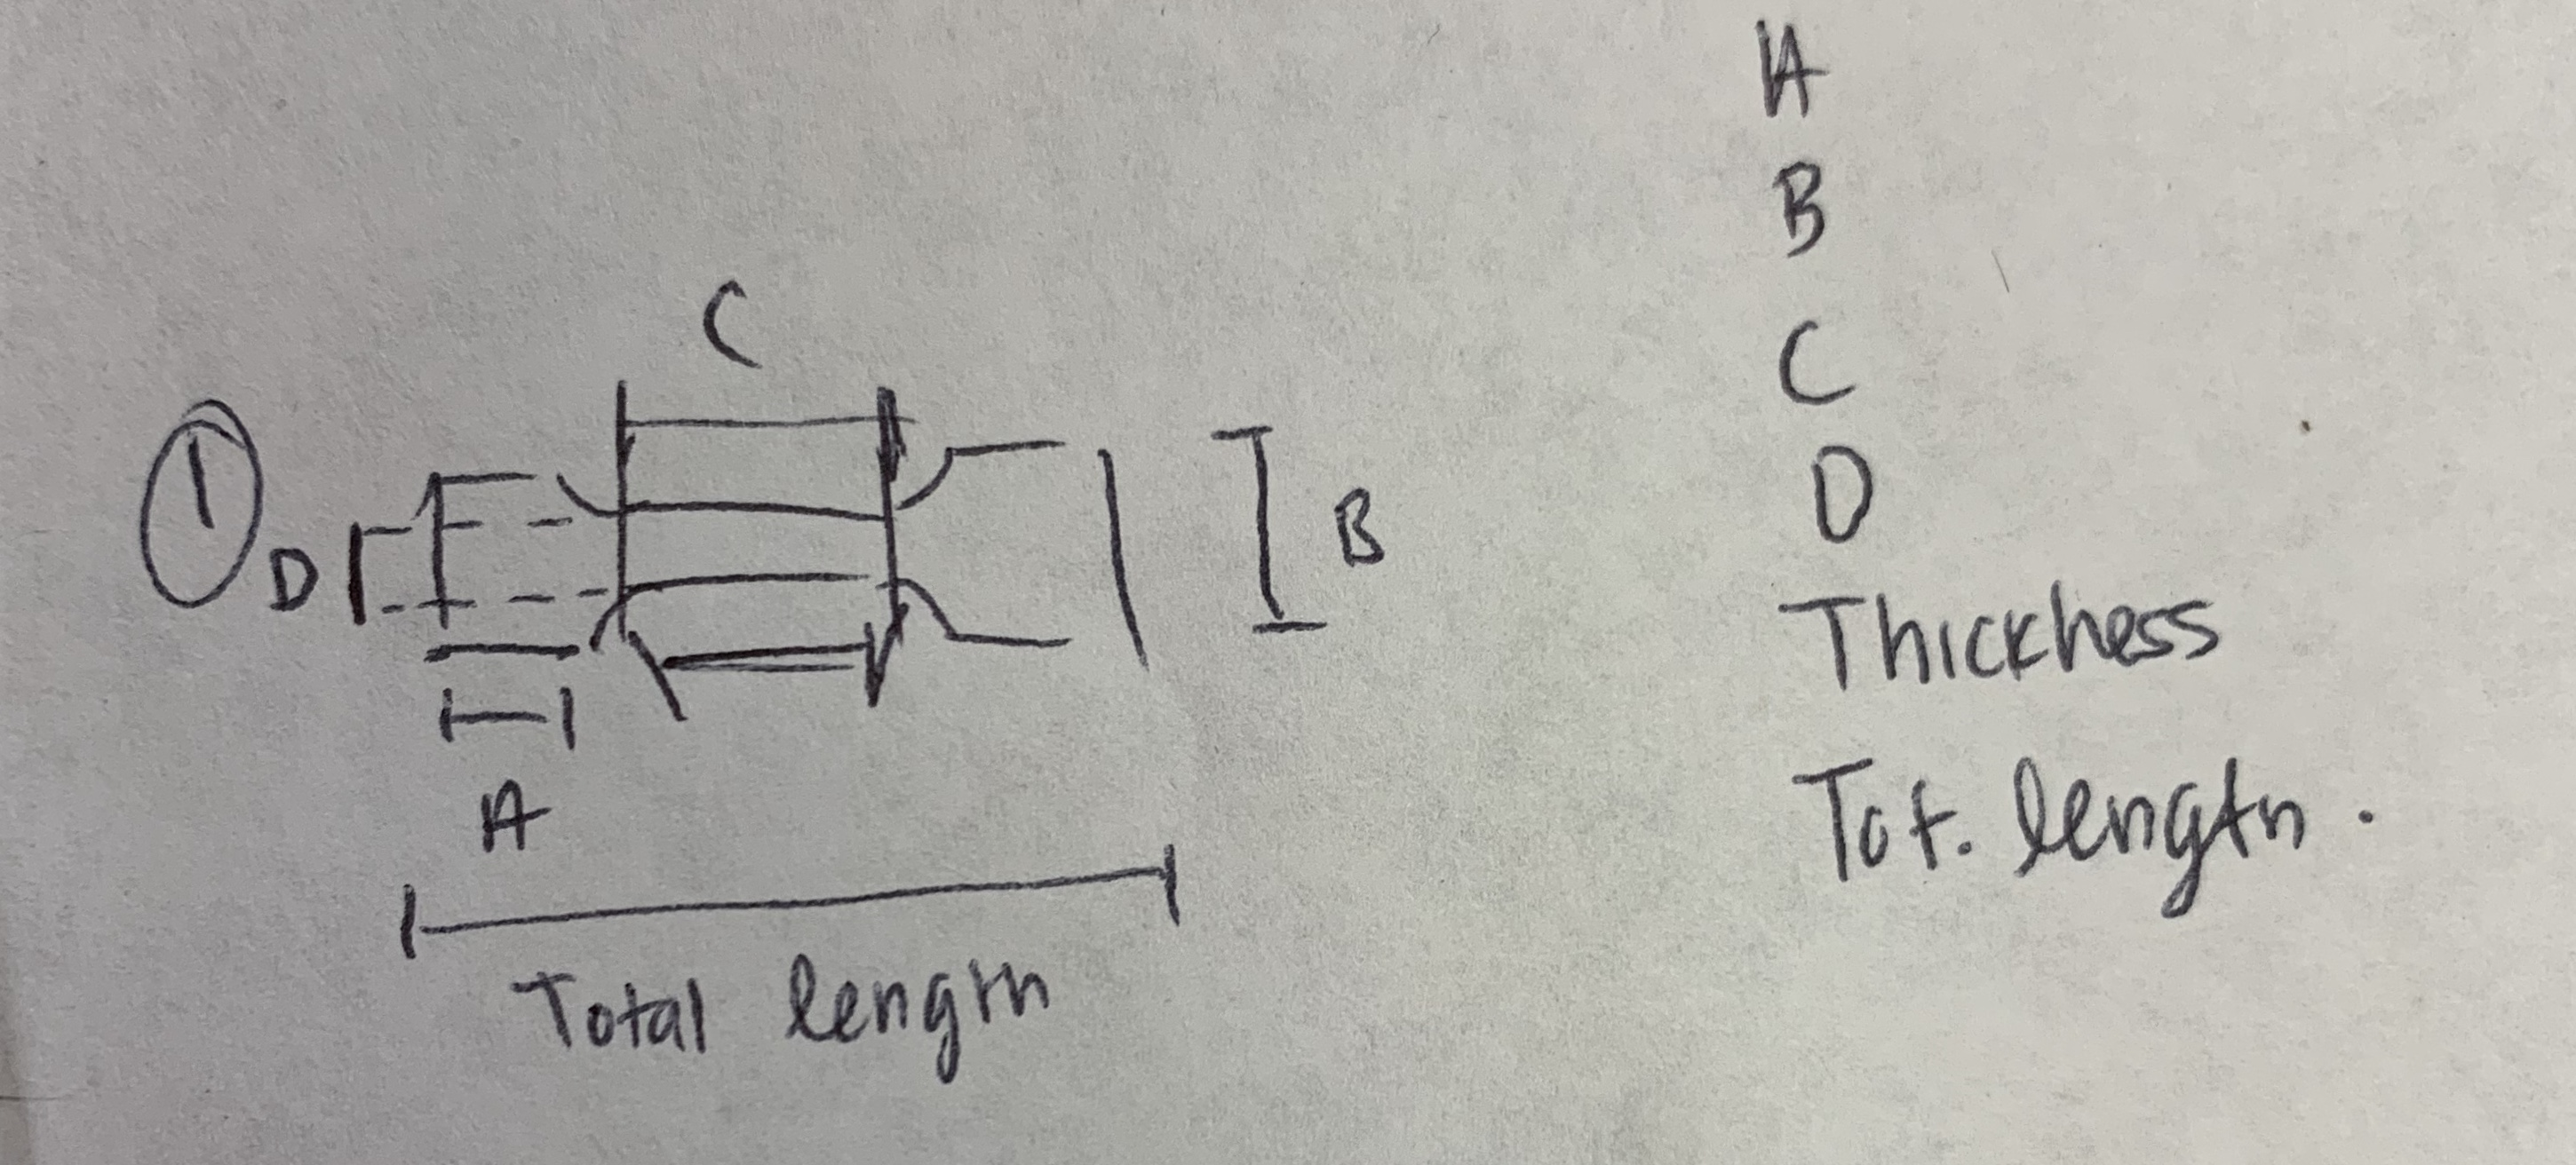 C
1
D
B
A
Total length
A
B
C
D
Thickness
Tot. length.